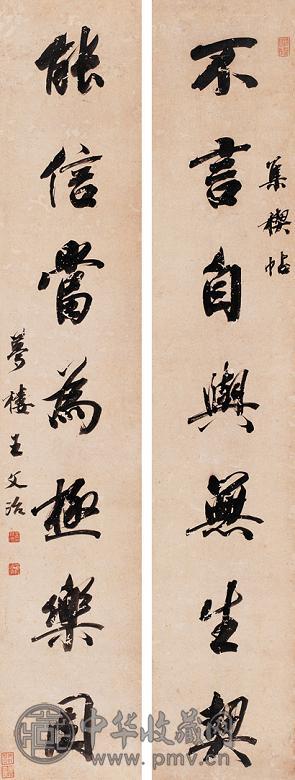 不言自與無生契
集禊帖
能信當為極樂因
夢樓王文治
中华收藏网
www.pmv.cn